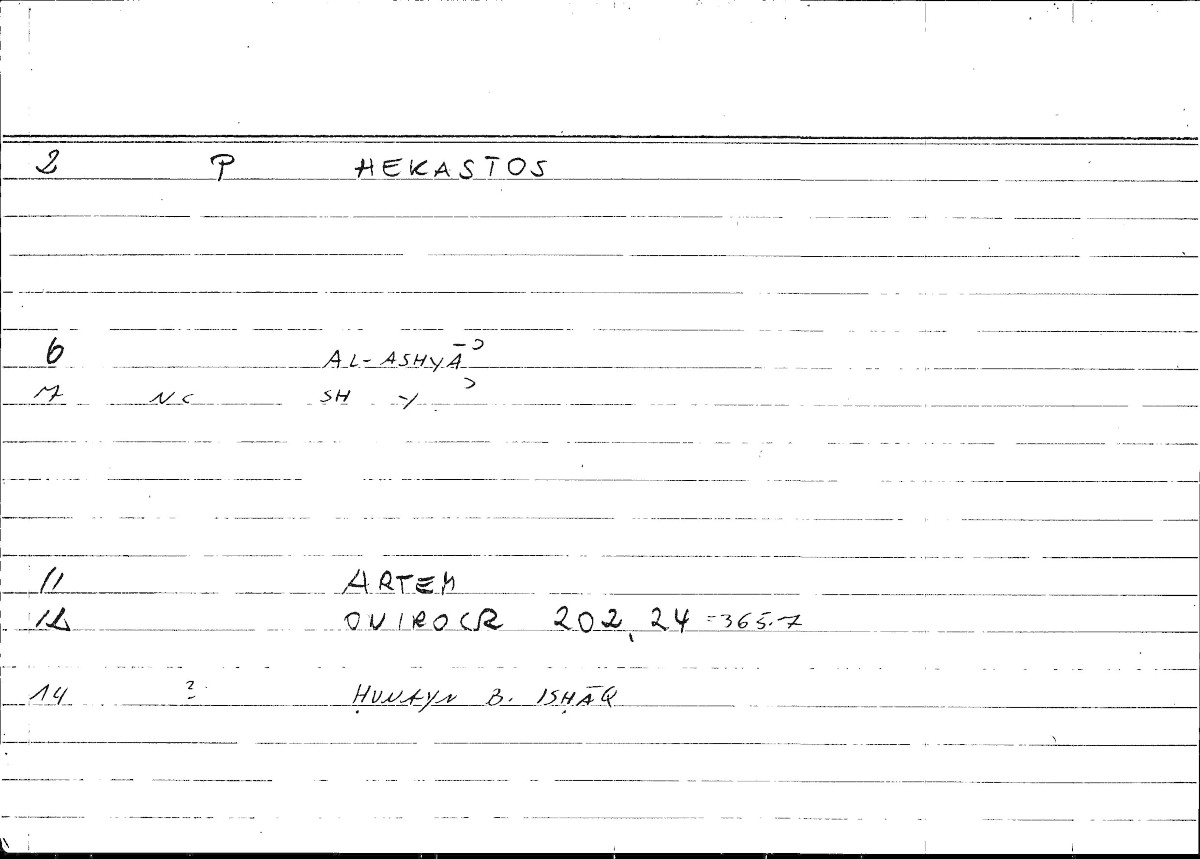 2 P HEKASTOS
6 AL-ASHYĀʾ
7 NC SH Y ʾ
11 ARTEM
12 ONIROCR 202,24 =365.7
14 ? ḤUNAYN B. ISḤĀQ